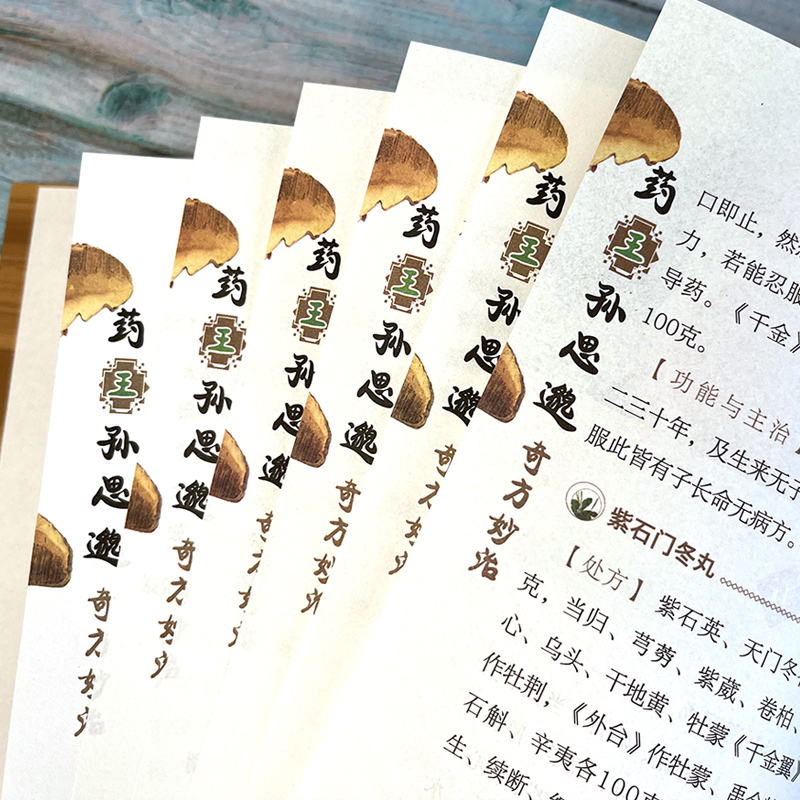 药王孙思邈奇方妙治
药王孙思邈奇方妙
药王孙思邈奇方
药王孙思邈奇方妙治
药王孙思邈奇方
药王孙思邈
药王孙思邈奇方妙治
口即止，然
力，若能忍服
导药。《千金》
100克。
【功能与主治】
二三十年，及生来无子
服此皆有子长命无病方。
紫石门冬丸
【处方】 紫石英、天门冬
克，当归、芎䓖、紫葳、卷柏、
心、乌头、干地黄、牡蒙《千金翼》
作牡荆，《外台》作牡蒙、禹余
石斛、辛夷各100克
生、续断、